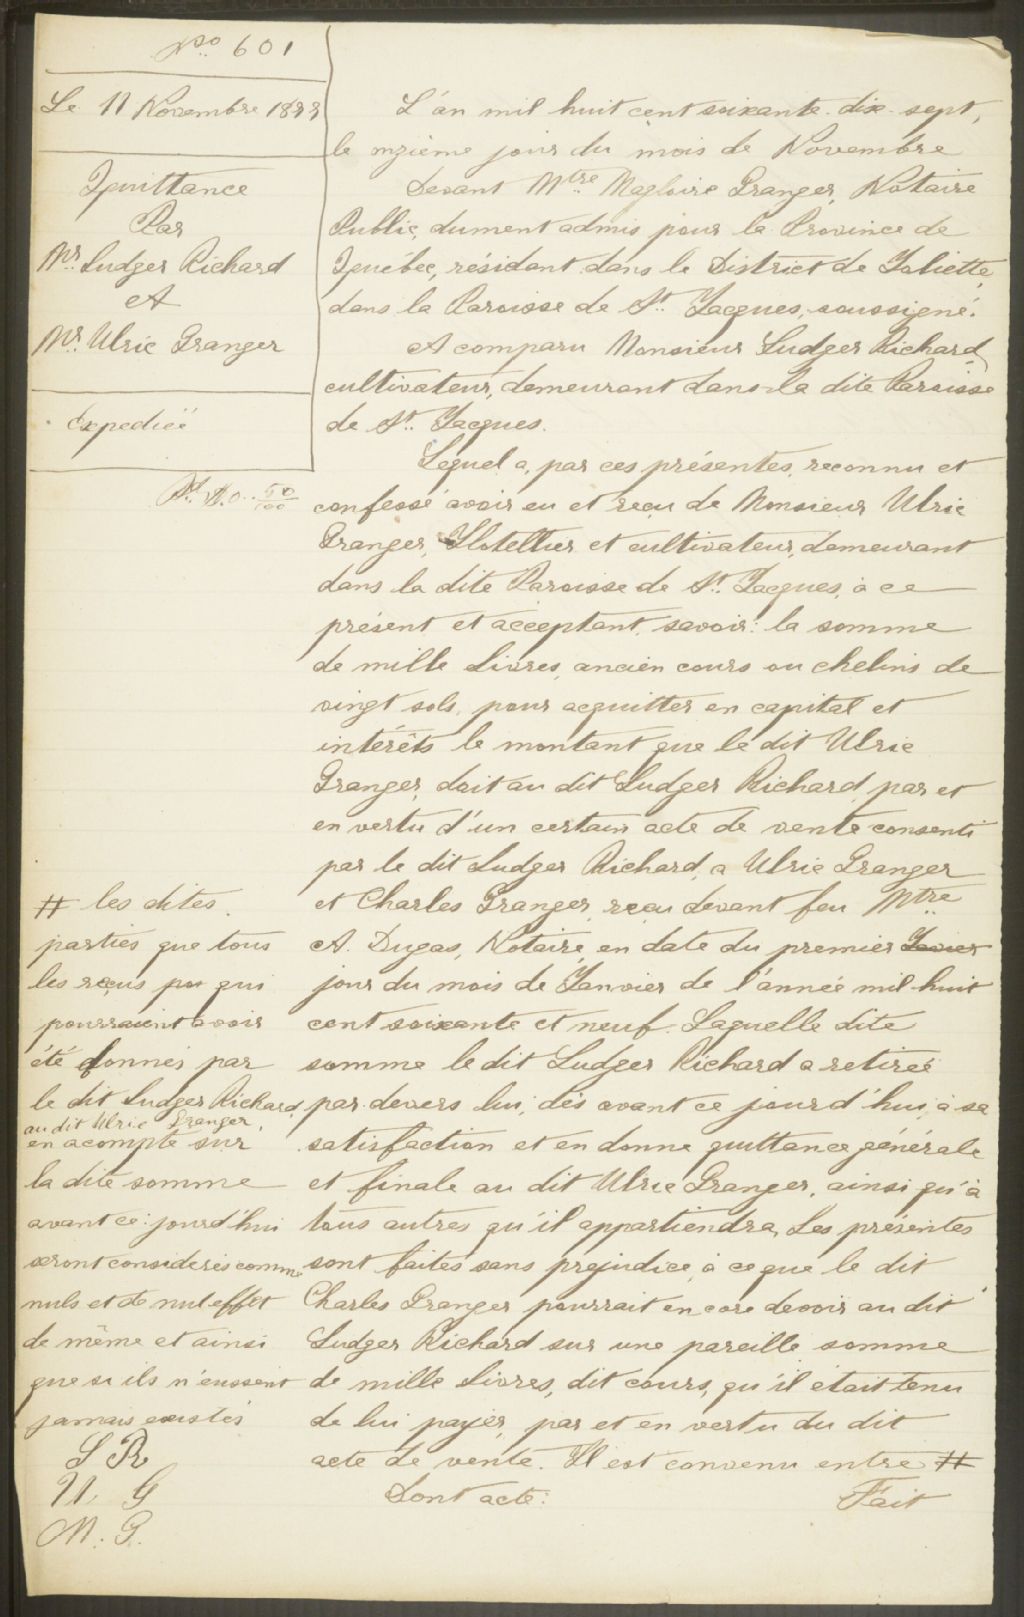 No 601
Le 11 Novembre 1877
Quittance
Par
Mr. Ludger Richard
A
Mr. Ulric Granger
Expediée
50/100
L'an mil huit cent soixante-dix-sept,
le onzième jour du mois de Novembre
Devant Mtre Magloire Granger, Notaire
Public, dument admis pour la Province de
Québec, résidant dans le District de Joliette,
dans la Paroisse de St. Jacques, soussigné.
A comparu Monsieur Ludger Richard
cultivateur, demeurant dans la dite Paroisse
de St. Jacques.
Lequel a, par ces présentes, reconnu et
confessé avoir eu et reçu de Monsieur Ulric
Granger, Hotellier et cultivateur, demeurant
dans la dite Paroisse de St. Jacques, à ce
présent et acceptant, savoir: la somme
de mille livres, ancien cours ou chelins de
vingt sols, pour acquitter en capital et
intérêts le montant que le dit Ulric
Granger, doit au dit Ludger Richard, par et
en vertu d'un certain acte de vente consenti
par le dit Ludger Richard, a Ulric Granger
et Charles Granger, reçu devant feu Mtre
A. Dugas, Notaire, en date du premier
jour du mois de Janvier de l'année mil huit
cent soixante et neuf. Laquelle dite
somme le dit Ludger Richard a retirée
par devers lui, dès avant ce jourd'hui, à sa
satisfaction et en donne quittance générale
et finale au dit Ulric Granger, ainsi qu'à
tous autres qu'il appartiendra, Les présentes
sont faites sans préjudice à ce que le dit
Charles Granger pourrait encore devoir au dit
Ludger Richard sur une pareille somme
de mille livres, dit cours, qu'il était tenu
de lui payer, par et en vertu du dit
acte de vente. Il est convenu entre #
Dont acte: Fait
# les dites
parties que tous
les reçus qui
pourraient avoir
été donnés par
le dit Ludger Richard,
au dit Ulric Granger,
en acompte sur
la dite somme
avant ce jourd'hui
seront considérés comme
nuls et de nul effet
de même et ainsi
que si ils n'eussent
jamais existés
L R
U. G
M. G.